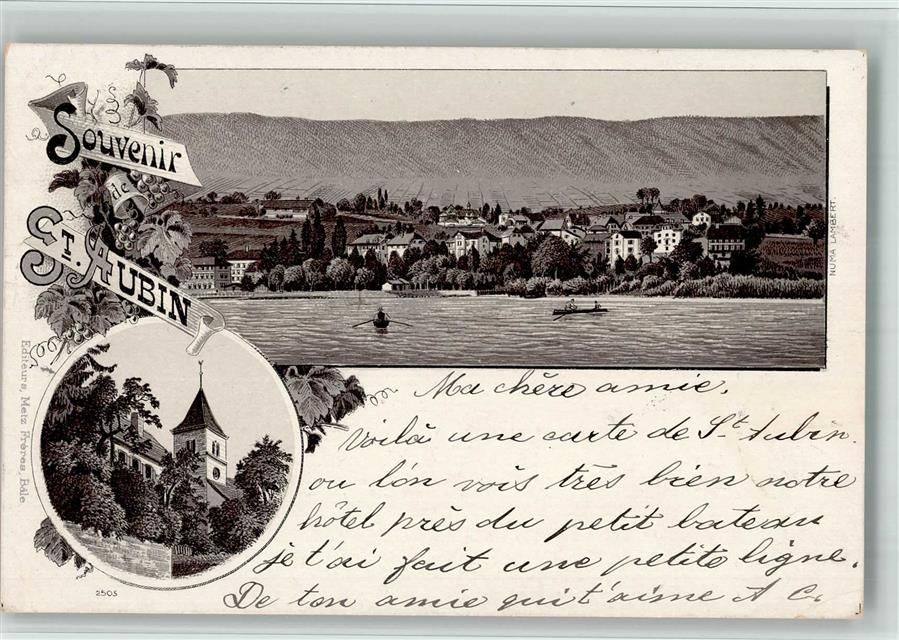 Souvenir
de
St. Aubin
NUMA LAMBERT.
Editeurs, Metz Frères, Bâle
2505
Ma chère amie,
Voilà une carte de St Aubin
ou l'on vois très bien notre
hôtel près du petit bateau
je t'ai fait une petite ligne.
De ton amie qui t'aime A C.